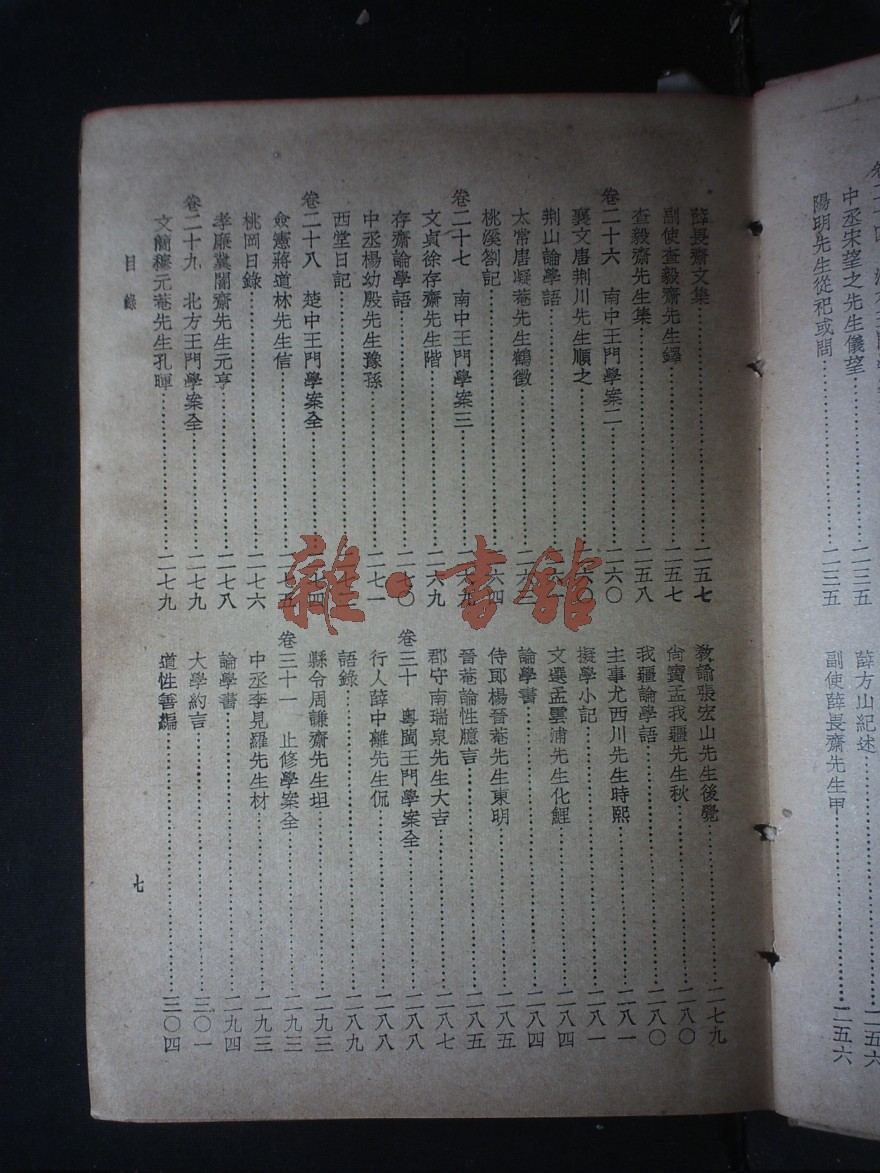 中丞宋望之先生儀望……二三五
陽明先生從祀或問……二三五
薛方山紀述……二五六
副使薛畏齋先生甲……二五六
薛畏齋文集……二五七
副使查毅齋先生鐸……二五七
查毅齋先生集……二五八
卷二十六 南中王門學案二……二六〇
襄文唐荆川先生順之……六〇
荆川論學語……
太常唐凝菴先生鶴徵……
桃溪劄記……六四
卷二十七 南中王門學案三……六九
文貞徐存齋先生階……二六九
存齋論學語……二七〇
中丞楊幼殷先生豫孫……二七一
西堂日記……
卷二十八 楚中王門學案全……七四
僉憲蔣道林先生信……七五
桃岡日錄……二七六
孝廉冀闇齋先生元亨……二七八
卷二十九 北方王門學案全……二七九
文簡穆元菴先生孔暉……二七九
教諭張宏山先生後覺……二七九
尚寶孟我疆先生秋……二八〇
我疆論學語……二八〇
主事尤西川先生時熙……二八一
擬學小記……二八一
文選孟雲浦先生化鯉……二八四
論學書……二八四
侍郎楊晉菴先生東明……二八五
晉菴論性臆言……二八五
郡守南瑞泉先生大吉……二八七
卷三十 粵閩王門學案全……二八八
行人薛中離先生侃……二八八
語錄……二八九
縣令周謙齋先生坦……二九三
卷三十一 止修學案全……二九三
中丞李見羅先生材……二九三
論學書……二九四
大學約言……三〇一
道性善編……三〇四
目錄
七
雜·書館